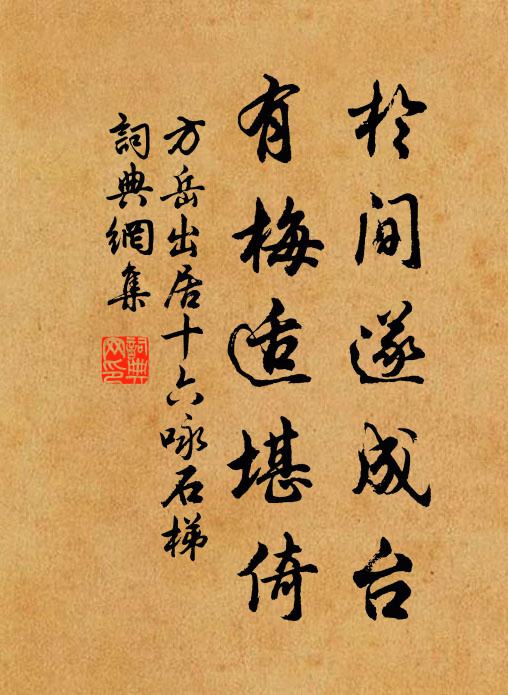 於间遂成台
有梅适堪倚
方岳出居十六咏石梯
詞典網集
詞典
网印